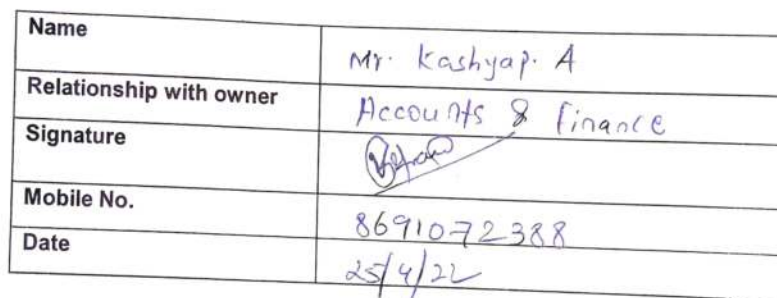 Name Mr. Kashyap. A
Relationship with owner Accounts & Finance
Signature
Mobile No. 8691072388
Date 25/4/22